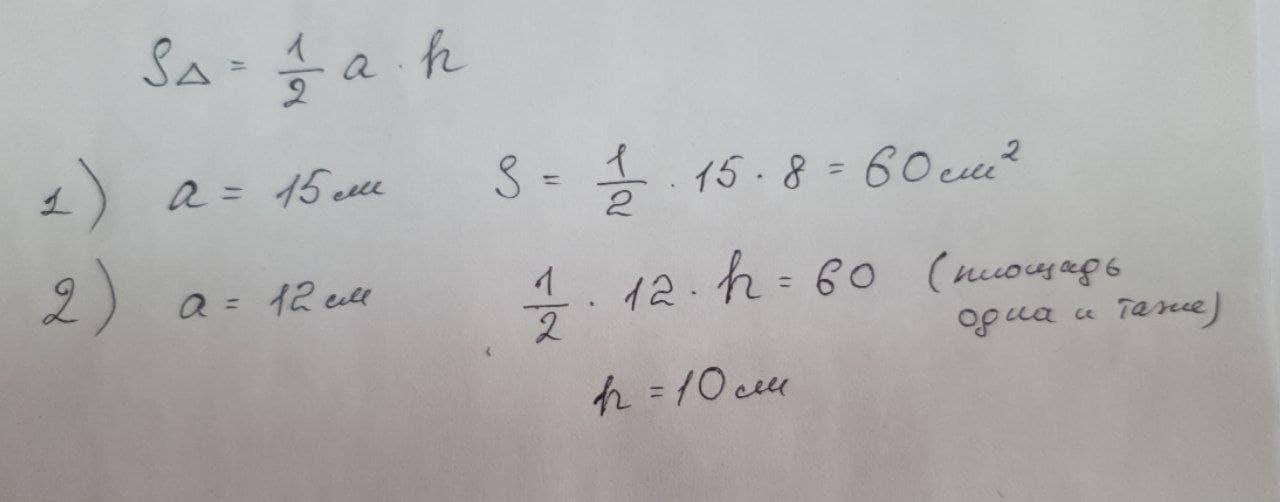 S△ = 1/2 a · h
1) a = 15 см S = 1/2 · 15 · 8 = 60 см²
2) a = 12 см 1/2 · 12 · h = 60 (площадь
одна и таже)
h = 10 см